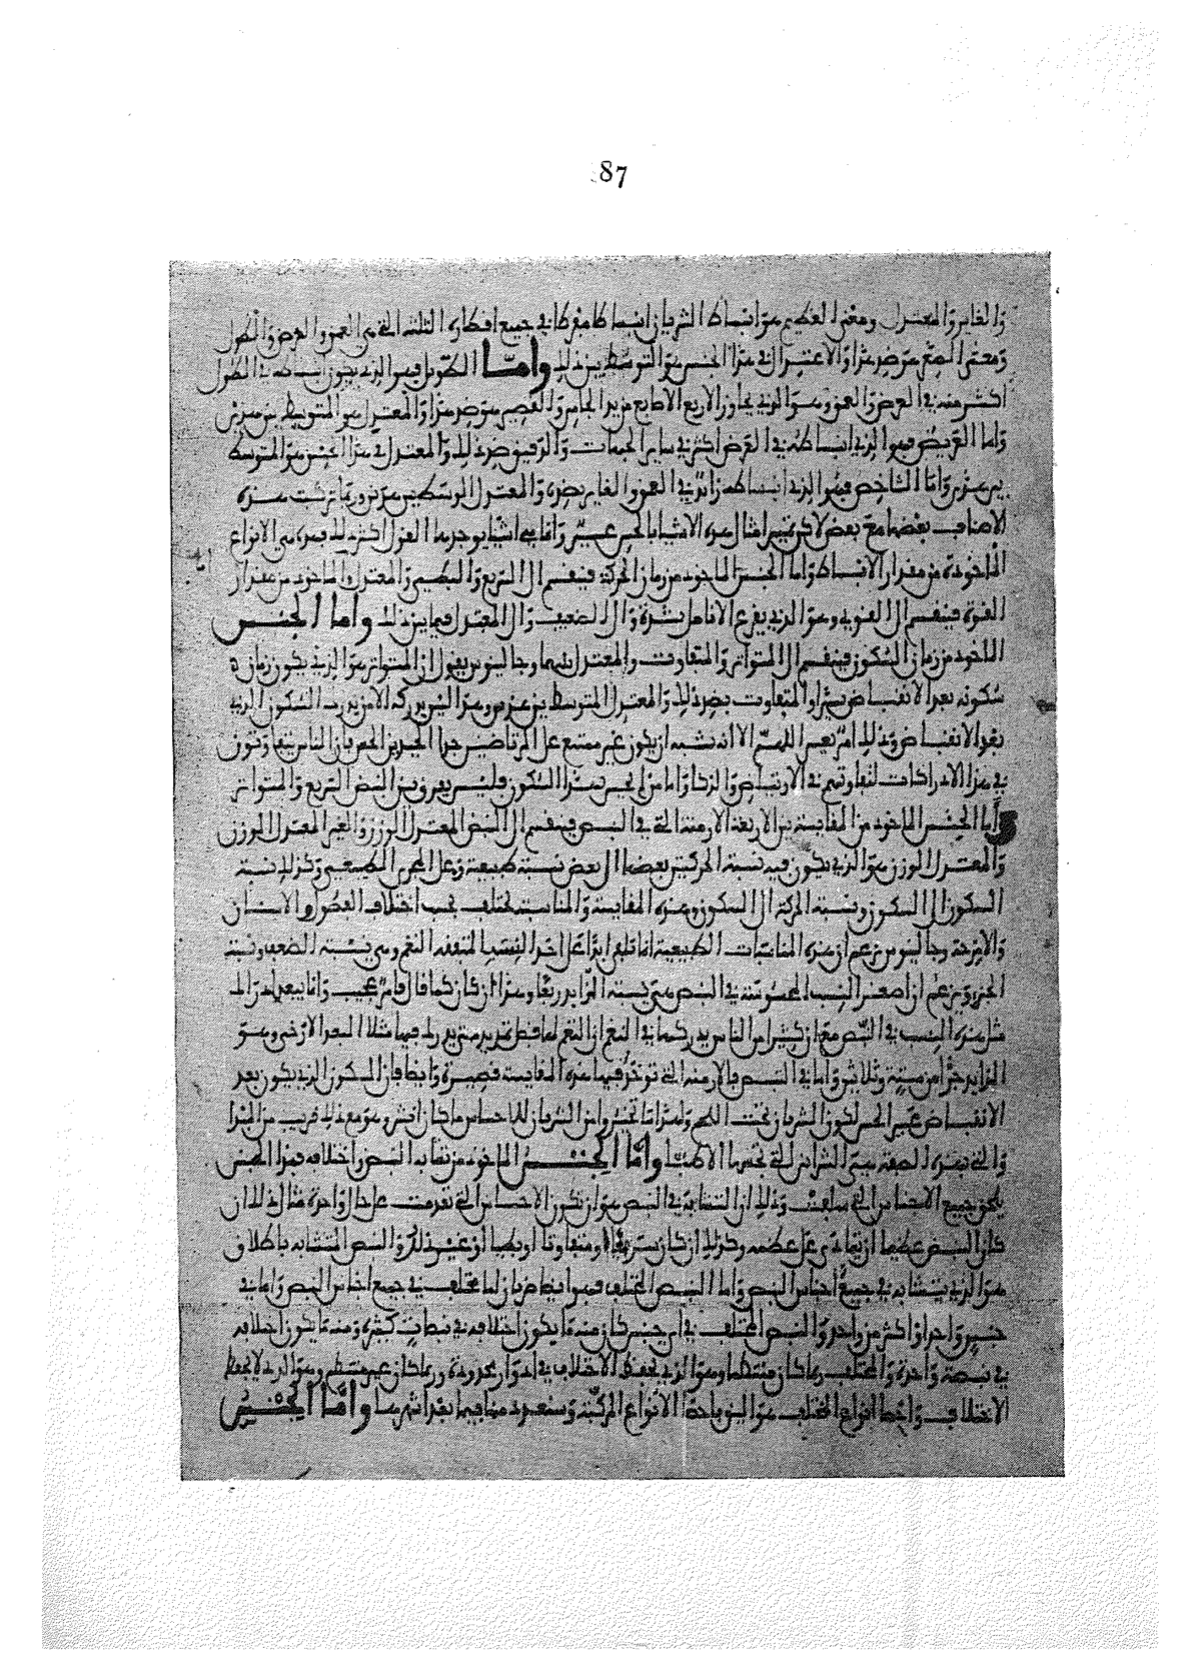 87
والغاير والمعتدل ومعنى العظيم هو انبساط الشريان انبساطا مفرطا في جميع اقطاره الثلثة التي هي العمق والعرض والطول
ومعنى الصغير هو ضد هذا والاعتدال في هذا الجنس هو التوسط بين ذلك واما الطويل فهو الذي يجوز انبساطه في الطول
اكثر منه في العرض والعمق وهو الذي يجاوز الاربع الاصابع من يد الجاس والقصير هو ضد هذا والمعتدل هو المتوسط بين هذين
واما العريض فهو الذي انبساطه في العرض اكثر في ساير الجهات والرقيق ضد ذلك والمعتدل في هذا الجنس هو المتوسط
بين هذين واما الشاخص فهو الذي انبساطه زائد في العمق والغاير ضده والمعتدل الوسط بين هذين وربما تركبت هذه
الاصناف بعضها مع بعض لاكن تمييز امثال هذه الاشيا بالحس عسير وانما هي اشيا يوجدها القول اكثر ذلك فهذه هي الانواع
الماخوذة من مقدار الانبساط واما الجنس الماخوذ من زمان الحركة فينقسم الى السريع والبطيء والمعتدل والماخوذ من مقدار
القوة فينقسم الى القوي وهو الذي يقرع الانامل بشدة والى الضعيف والى المعتدل فيما بين ذلك واما الجنس
الماخوذ من زمان السكون فينقسم الى المتواتر والمتفاوت والمعتدل بينهما وجالينوس يقول ان المتواتر هو الذي يكون زمان
سكونه بعد الانقباض يسيرا والمتفاوت بضد ذلك والمعتدل المتوسط بين هذين وهذا ليس يدركه الا من يدرك السكون الذي
يقفو الانقباض وذلك امر بعيد اللهم الا انه يشبه ان يكون غير ممتنع على المرتاضين جدا الجيدين الحس فان الناس يتفاوتون
في هذا الادراكات لتفاوتهم في الارتياض والذكا واما من لم يحس هذا السكون فليس يفرق بين النبض السريع والمتواتر
واما الجنس الماخوذ من المقايسة بين الاربعة الازمنة التي في النبض فينقسم الى النبض المعتدل الوزن والغير المعتدل الوزن
والمعتدل الوزن هو الذي يكون فيه نسبة الحركتين بعضها الى بعض نسبة طبيعية وعلى المجرى الطبيعي وكذلك نسبة
السكون الى السكون ونسبة الحركة الى السكون وهذه المقايسة والمناسبة تختلف بحسب اختلاف الفصول والاسنان
والامزجة وجالينوس يزعم ان هذه المناسبات الطبيعية انما تلفى ابدا على احد النسب المتفقة النغم وهي نسبة الضعف ونسبة
الجزء ويزعم ان اصغر النسب المحسوسة في النبض هي نسبة الزايد ربعا وهذا ان كان كما قال فامر عجيب وانا
مثل هذه النسب في النبض مع ان كثيرا من الناس يدركها في النغم
الزايد جزءا من ستة وثلاثين واما في النبض فالازمنة التي توخذ فيها هذه المقايسة قصيرة وايضا فان السكون الذي يكون بعد
الانقباض عسير الحس لكون الشريان تحت اللحم
والتي بهذه الصفة هي الشرايين التي تجسها الاطبا واما الجنس الماخوذ من تشابه النبض واختلافه فهذا الجنس
يلحق جميع الاجناس التي سلفت وذلك ان التشابه في النبض هو ان تكون الاجناس التي تقدمت على حال واحدة مثال ذلك ان
كان النبض عظيما ان يتمادى على عظمه وكذلك ان كان سريعا او متفاوتا او بطيا او غير ذلك والنبض المتشابه باطلاق
هو الذي يتشابه في جميع اجناس النبض واما النبض المختلف فهو ايضا ضربان اما مختلف في جميع اجناس النبض واما في
جنس واحد او اكثر من واحد والنبض المختلف في اي جنس كان منه ما يكون اختلافه في نبضات كثيرة ومنه ما يكون اختلافه
في نبضة واحدة والمختلف ربما كان منتظما وهو الذي يحفظ الاختلاف في ادوار محدودة وربما كان غير منتظم وهو الذي لا يحفظ
الاختلاف واحد انواع المختلف هو النبض باحد الانواع المركبة وسنعدد منها فيما بعد اشهرها واما الجنس